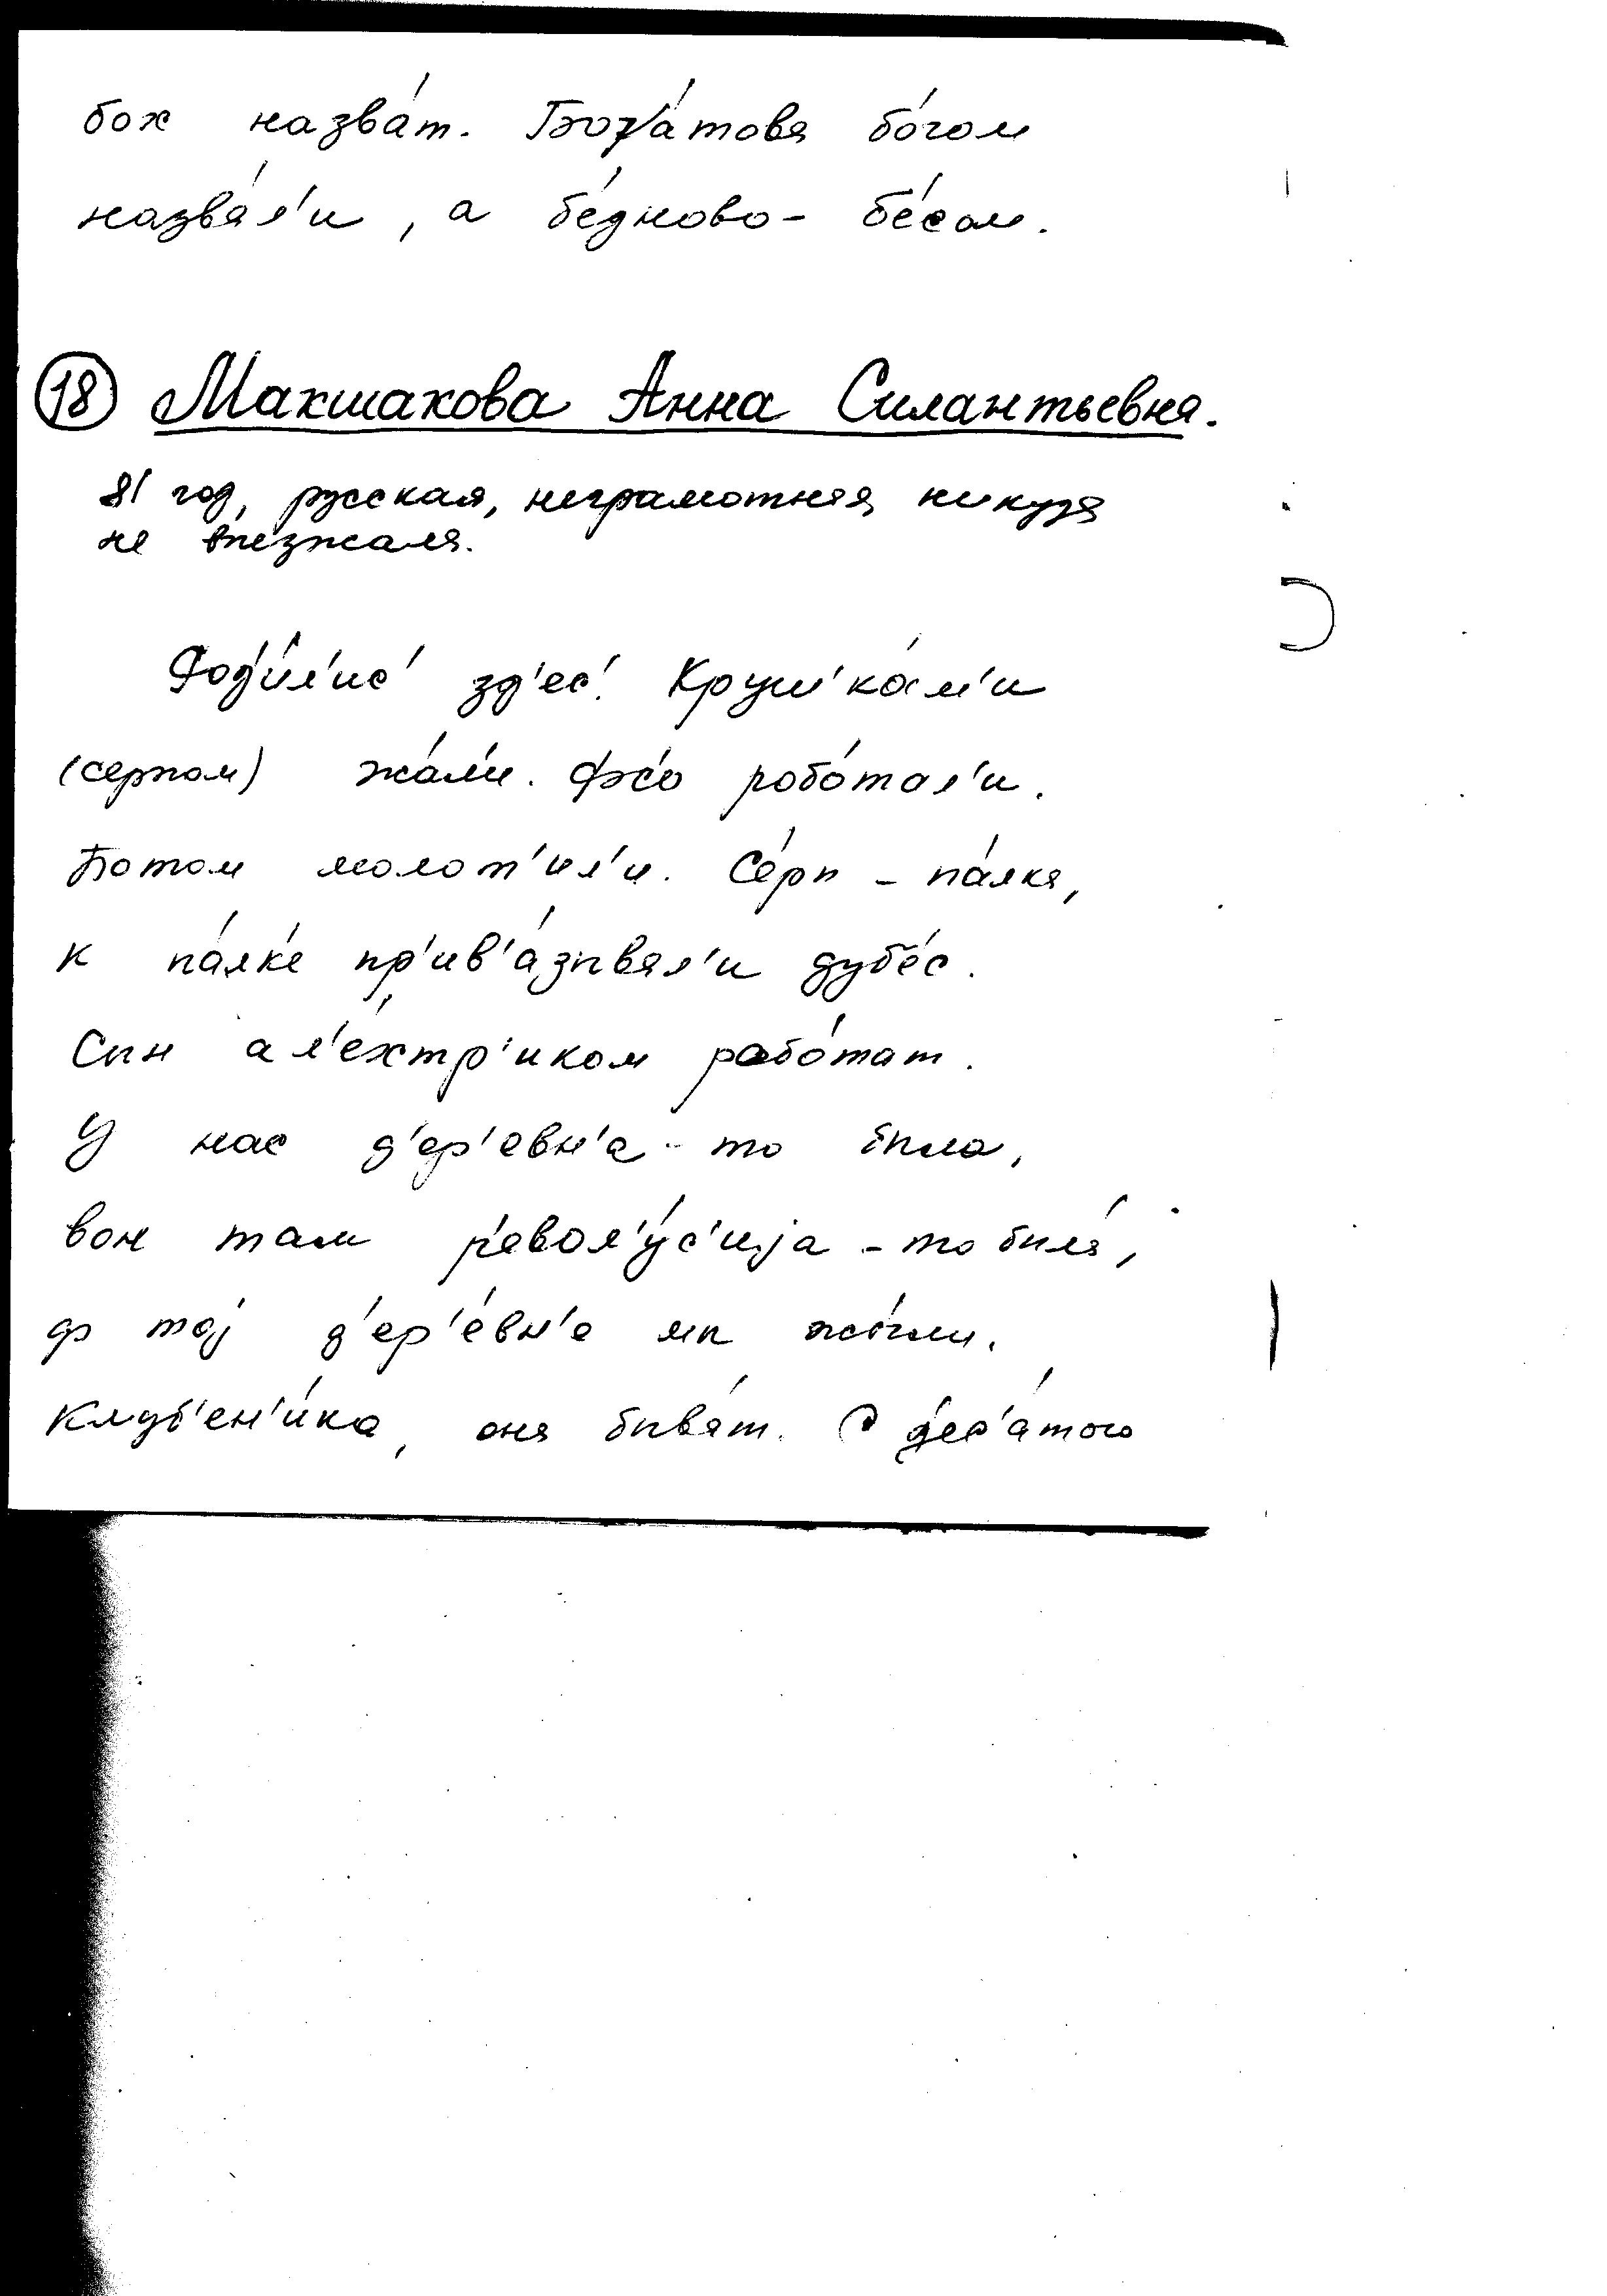 бох назва́т. Боγа́това бо́гом
назва́л'и, а бе́дново - бе́сом.
(18) Макшакова Анна Силантьевна.
81 год, русская, неграмотная, никуда
не выезжала.
Род'и́л'ис' зд'ес'. Круш'ка́м'и
(серпом) жа́л'и. Фс'о робо́тал'и.
Потом молот'ил'и. Се́рп - па́лка,
к па́лк'е пр'ив'а́зывал'и дубе́с.
Сын ал'е́хтр'иком рабо́тат.
У нас д'ер'евн'а-то была,
вон там р'евол'у́с'иjа-то была́,
ф тоj д'ер'е́вн'е мы жы́ли.
Клуб'ен'и́ка, она быва́т. С д'ес'а́того